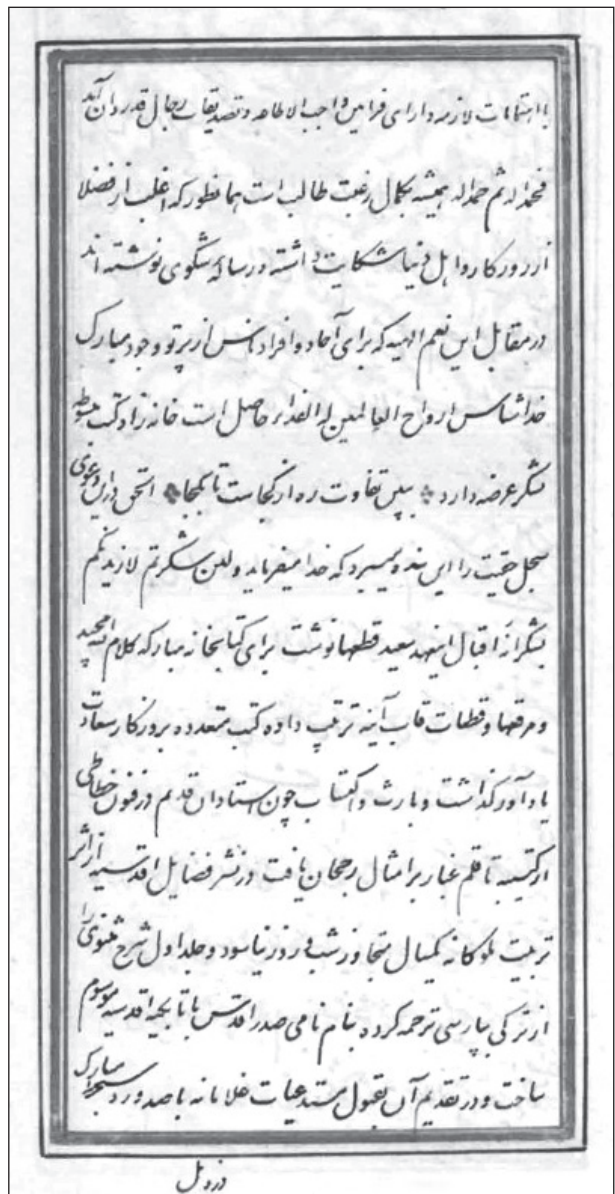 با اهتمامات لازمه دارای فرامین واجب الاطاعه و تصدیقات رجال قدردان آمد
فحمدا له ثم حمدا له همیشه بکمال رغبت طالب است همانطور که اغلب از فضلا
از روزگار و اهل دنیا شکایت داشته و رساله شکوی نوشته اند
در مقابل این نعم الهیه که برای آحاد و افراد انس از پرتو وجود مبارک
خداشناس ارواح العالمین له الفدا بر حاصل است خانه زاد کتب مبسوطه
تشکر عرضه دارد ببین تفاوت ره از کجاست تا بکجا الحق در این دعوی
سجل حقیت را این بنده میسپرد که خدا میفرماید ولئن شکرتم لازیدنکم
بشکرانه اقبال اینعهد سعید قطعها نوشت برای کتابخانه مبارکه کلام الله مجید
و مرقعها و قطعات قاب آینه ترتیب داده کتب متعدده بروزگار سعادت
یادآور گذاشت و بارث و اکتساب چون استادان قدیم در فنون خطاطی
از کتیبه تا قلم غبار بر امثال رجحان یافت و در نشر فضایل اقدسیه از اثر
تربیت ملوکانه یکسال متجاوز شب و روز نیاسود و جلد اول شرح مثنوی را
از ترکی بپارسی ترجمه کرده بنام نامی صدر اقدس با تابحیه اقدسیه موسوم
ساخت و در تقدیم آن بقبول مستدعیات غلامانه با صدور دستخط مبارک